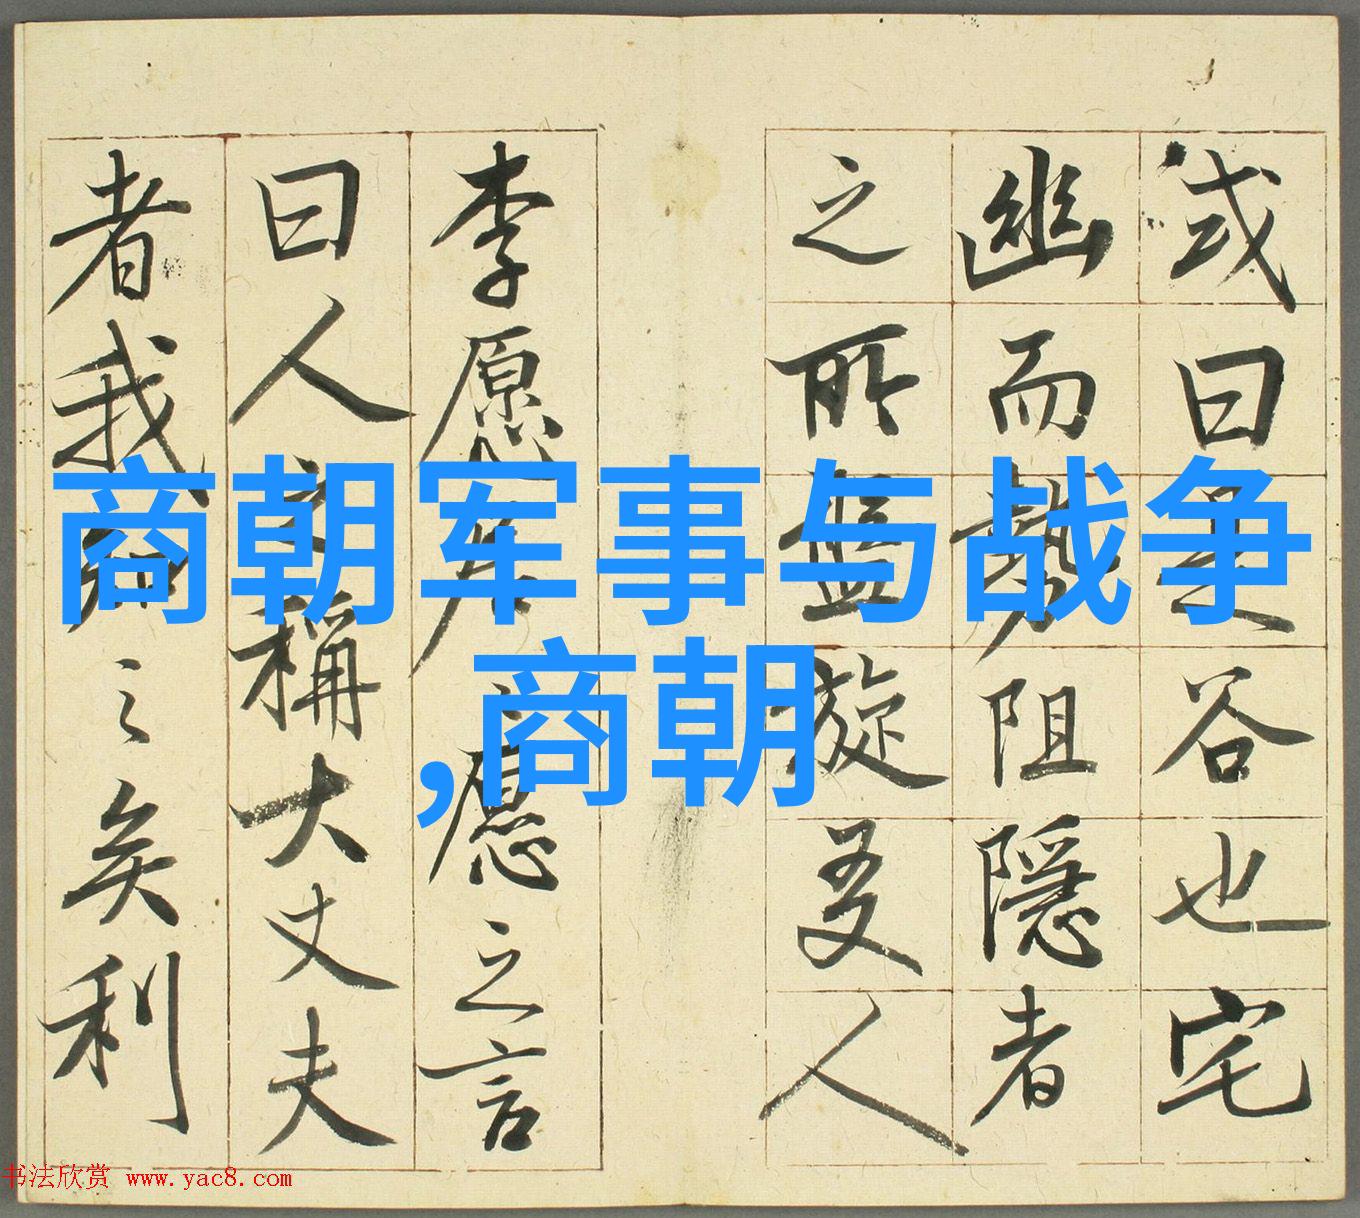 或曰是谷也宅
幽而勢阻隱者
之所盤旋友人
李愿居之愿之言
曰人之稱大丈夫
者我知之矣利
商朝军事与战争
,商朝
书法欣赏 www.yac8.com